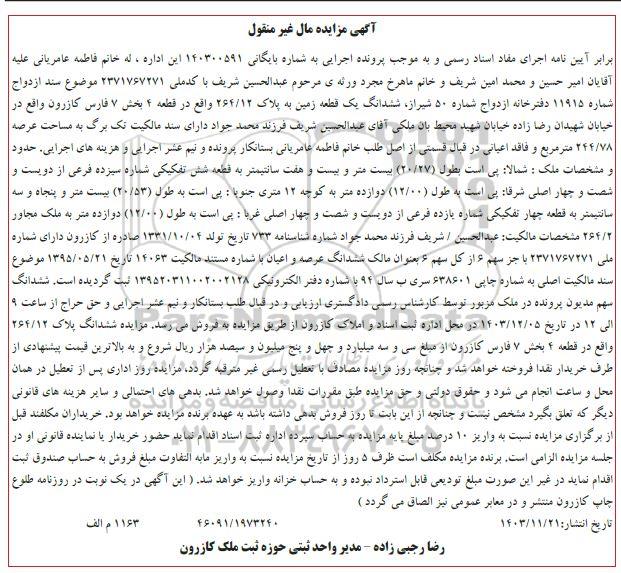 آگهی مزایده مال غیر منقول
برابر آیین نامه اجرای مفاد اسناد رسمی و به موجب پرونده اجرایی به شماره بایگانی ۱۴۰۳۰۰۵۹۱ این اداره ، له خانم فاطمه عامریانی علیه
آقایان امیر حسین و محمد امین شریف و خانم ماهرخ مجرد ورثه ی مرحوم عبدالحسین شریف با کدملی ۲۳۷۱۷۶۷۲۷۱ موضوع سند ازدواج
شماره ۱۱۹۱۵ دفترخانه ازدواج شماره ۵۰ شیراز، ششدانگ یک قطعه زمین به پلاک ۲۶۴/۱۲ واقع در قطعه ۴ بخش ۷ فارس کازرون واقع در
خیابان شهیدان رضا زاده خیابان شهید محیط بان ملکی آقای عبدالحسین شریف فرزند محمد جواد دارای سند مالکیت تک برگ به مساحت عرصه
۲۴۴/۷۸ مترمربع و فاقد اعیانی در قبال قسمتی از اصل طلب خانم فاطمه عامریانی بستانکار پرونده و نیم عشر اجرایی و هزینه های اجرایی. حدود
و مشخصات ملک : شمالا: پی است بطول (۲۰/۲۷) بیست متر و بیست و هفت سانتیمتر به قطعه شش تفکیکی شماره سیزده فرعی از دویست و
شصت و چهار اصلی شرقا: پی است به طول (۱۲/۰۰) دوازده متر به کوچه ۱۲ متری جنوبا : پی است به طول (۲۰/۵۳) بیست متر و پنجاه و سه
سانتیمتر به قطعه چهار تفکیکی شماره یازده فرعی از دویست و شصت و چهار اصلی غربا : پی است به طول (۱۲/۰۰) دوازده متر به ملک مجاور
۲۶۴/۲ مشخصات مالکیت: عبدالحسین / شریف فرزند محمد جواد شماره شناسنامه ۷۳۳ تاریخ تولد ۱۳۳۱/۱۰/۰۴ صادره از کازرون دارای شماره
ملی ۲۳۷۱۷۶۷۲۷۱ با جز سهم ۶ از کل سهم ۶ بعنوان مالک ششدانگ عرصه و اعیان با شماره مستند مالکیت ۱۴۰۶۳ تاریخ ۱۳۹۵/۰۵/۲۱ موضوع
سند مالکیت اصلی به شماره چاپی ۶۳۸۶۰۱ سری ب سال ۹۴ با شماره دفتر الکترونیکی ۱۳۹۵۲۰۳۱۱۰۰۲۰۰۲۱۲۸ ثبت گردیده است. ششدانگ
سهم مدیون پرونده در ملک مزبور توسط کارشناس رسمی دادگستری ارزیابی و در قبال طلب بستانکار و نیم عشر اجرایی و حق حراج از ساعت ۹
الی ۱۲ در تاریخ ۱۴۰۳/۱۲/۰۵ در محل اداره ثبت اسناد و املاک کازرون از طریق مزایده به فروش می رسد. مزایده ششدانگ پلاک ۲۶۴/۱۲
واقع در قطعه ۴ بخش ۷ فارس کازرون از مبلغ سی و سه میلیارد و چهل و پنج میلیون و سیصد هزار ریال شروع و به بالاترین قیمت پیشنهادی از
طرف خریدار نقدا فروخته خواهد شد و چنانچه روز مزایده مصادف با تعطیل رسمی غیر مترقبه گردد، مزایده روز اداری پس از تعطیل در همان
محل و ساعت انجام می شود و حقوق دولتی و حق مزایده طبق مقررات نقدا وصول خواهد شد. بدهی های احتمالی و سایر هزینه های قانونی
دیگر که تعلق بگیرد مشخص نیست و چنانچه از این بابت تا روز فروش بدهی داشته باشد به عهده برنده مزایده خواهد بود. خریداران مکلفند قبل
از برگزاری مزایده نسبت به واریز ۱۰ درصد مبلغ پایه مزایده به حساب سپرده اداره ثبت اسناد اقدام نماید حضور خریدار یا نماینده قانونی او در
جلسه مزایده الزامی است. برنده مزایده مکلف است ظرف ۵ روز از تاریخ مزایده نسبت به واریز مابه التفاوت مبلغ فروش به حساب صندوق ثبت
اقدام نماید در غیر این صورت مبلغ تودیعی قابل استرداد نبوده و به حساب خزانه واریز خواهد شد. ( این آگهی در یک نوبت در روزنامه طلوع
چاپ کازرون منتشر و در معابر عمومی نیز الصاق می گردد )
تاریخ انتشار: ۱۴۰۳/۱۱/۲۱ ۴۶۰۹۱/۱۹۷۳۲۴۰ ۱۱۶۳ م الف
رضا رجبی زاده – مدیر واحد ثبتی حوزه ثبت ملک کازرون
ParsNamadData
۰۲۱-۸۸۳۴۹۶۷۰-۵